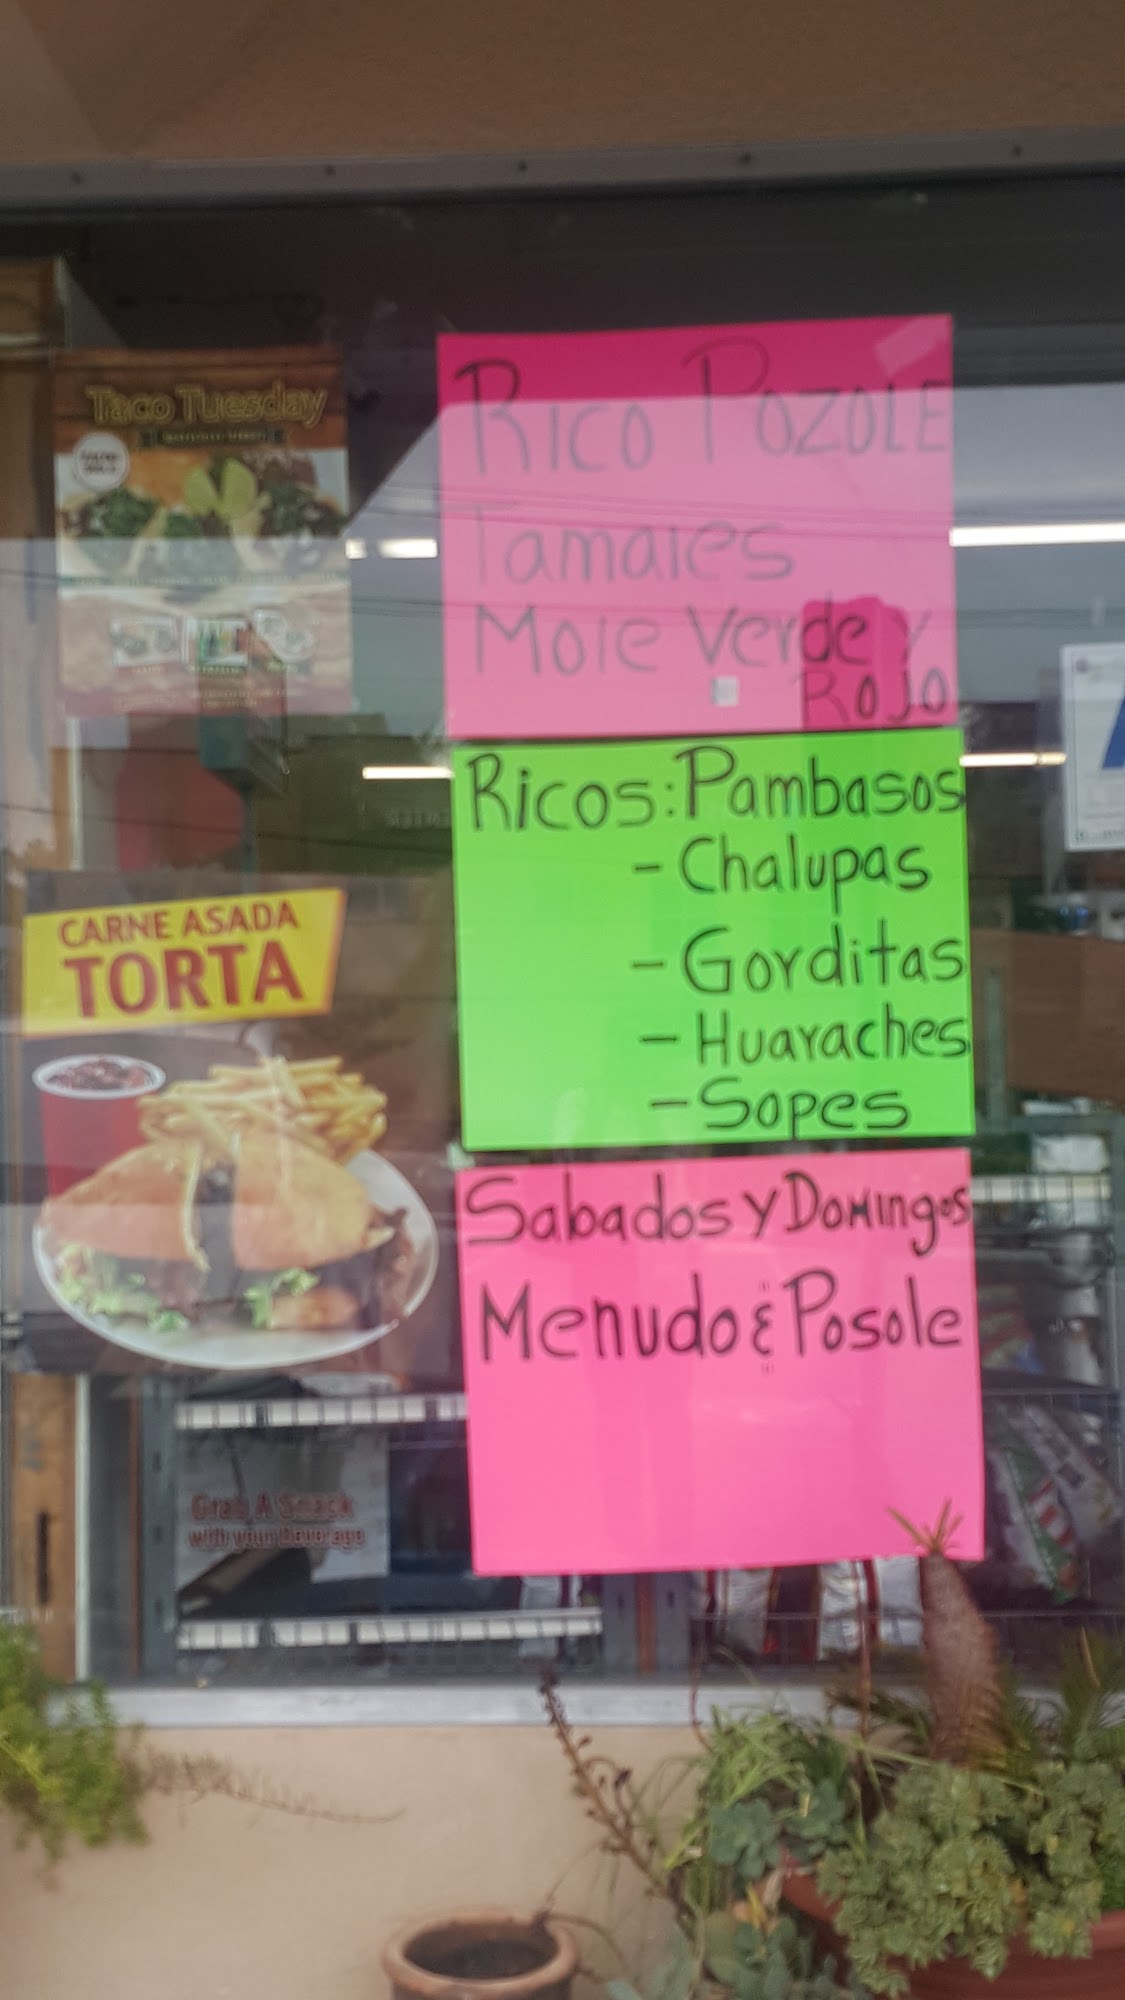 Taco Tuesday
RICO POZOLE
Tamales
Mole Verde y
ROJO
Ricos: Pambasos
- Chalupas
- Gorditas
- Huaraches
- Sopes
Sabados y Domingos
Menudo & Posole
CARNE ASADA
TORTA
Grab A Snack
with your Beverage